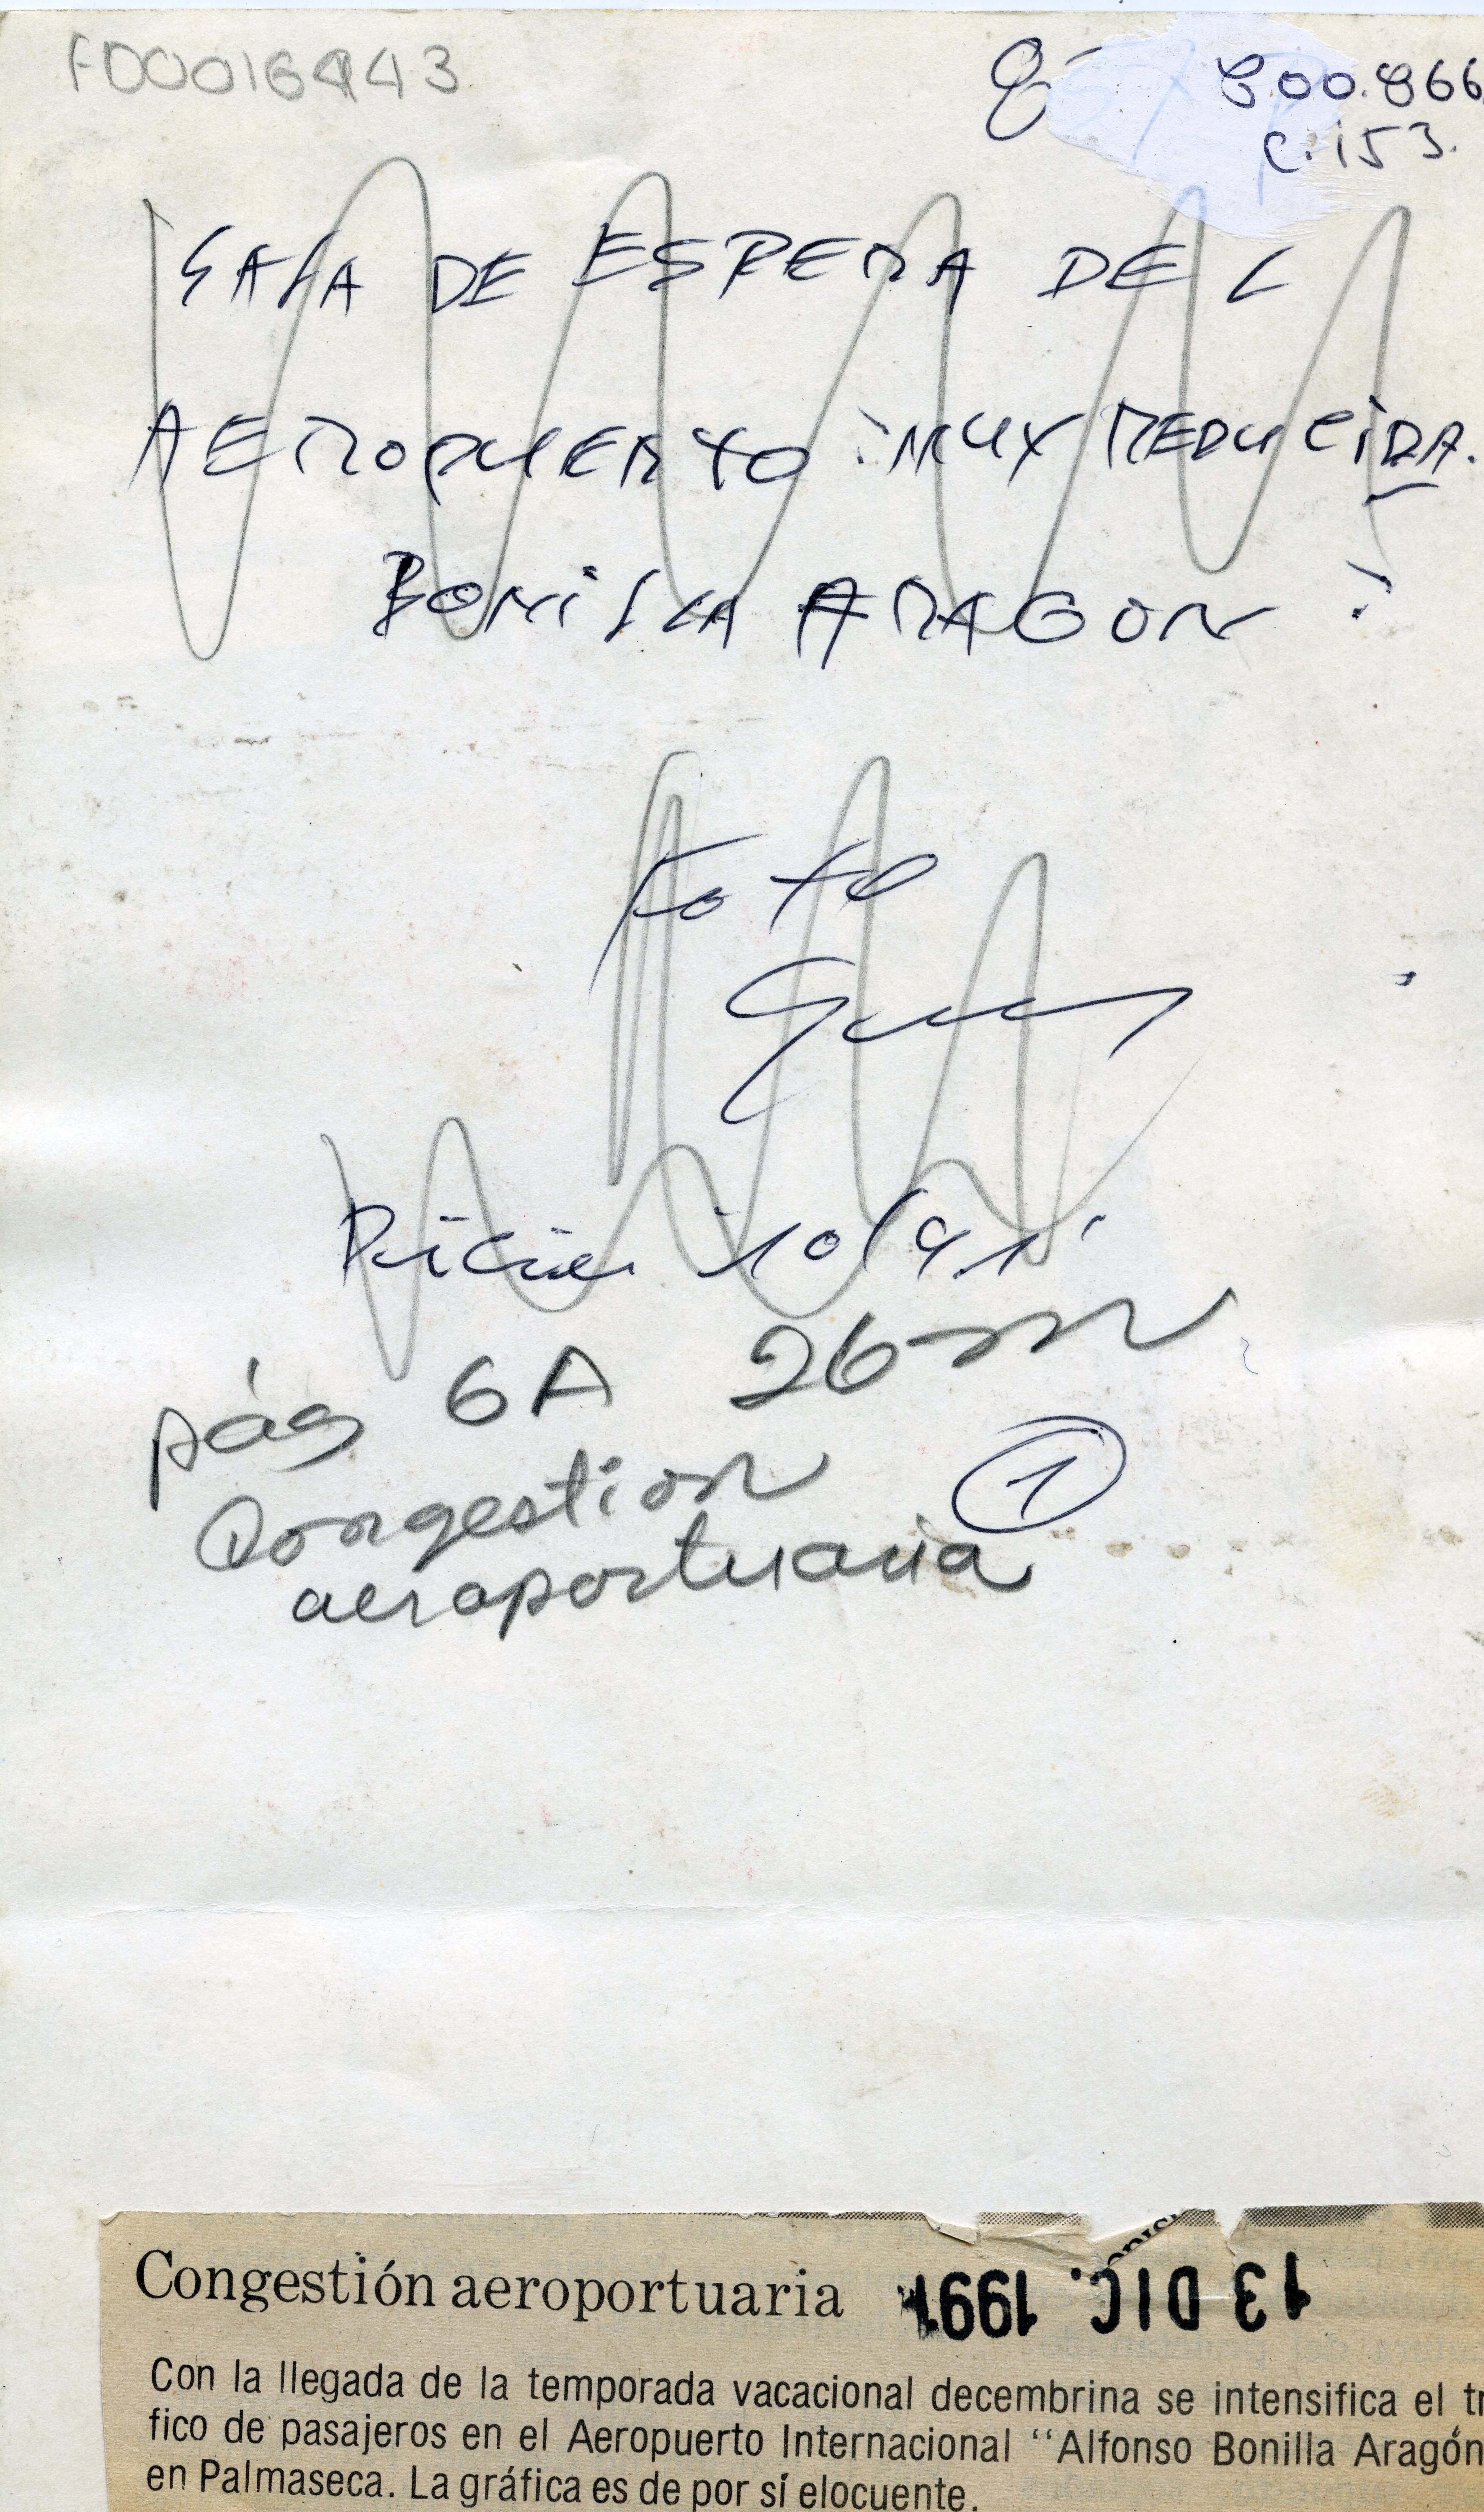 FD0016443
800.866
C.153.
SALA DE ESPERA DEL
AEROPUERTO MUY REDUCIDA.
BONILLA ARAGON
Foto
10/91
pág 6A 26
Congestion
1
aeroportuaria
Congestión aeroportuaria
13 DIC. 1991
Con la llegada de la temporada vacacional decembrina se intensifica el tr
fico de pasajeros en el Aeropuerto Internacional “Alfonso Bonilla Aragón
en Palmaseca. La gráfica es de por sí elocuente.